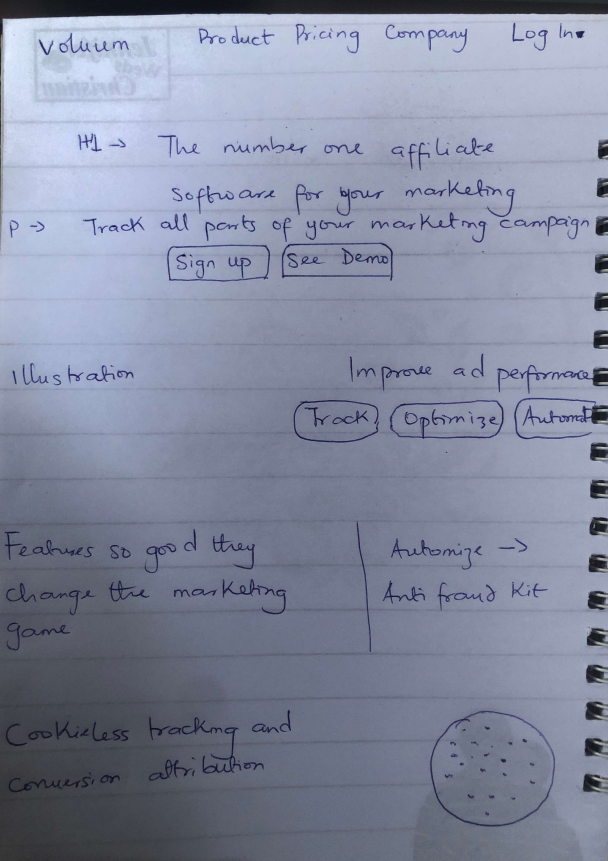 Voluum Product Pricing Company Log In
H1 → The number one affiliate
software for your marketing
P → Track all parts of your marketing campaign
Sign up See Demo
Illustration Improve ad performance
Track Optimize Automat
Features so good they Automize →
change the marketing Anti fraud Kit
game
Cookieless tracking and
conversion attribution